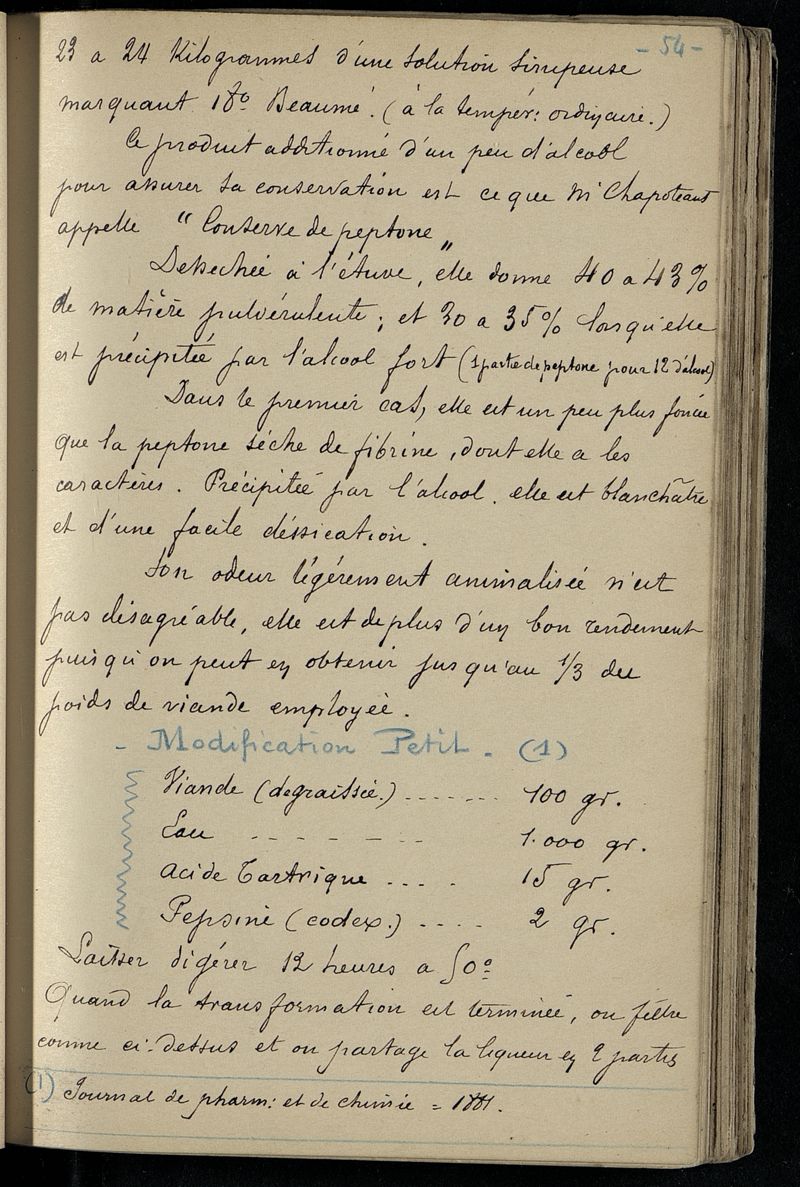 - 54 -
23 a 24 Kilogrammes d'une solution sirupeuse
marquant 18° Beaumé. (à la tempér: ordinaire.)
Ce produit additionné d'un peu d'alcool
pour assurer sa conservation est ce que Mr Chapoteaut
appelle " Conserve de peptone "
Desséchée à l'étuve, elle donne 40 a 43 %
de matière pulvérulente ; et 30 a 35 % lorsqu'elle
est précipitée par l'alcool fort (1 partie de peptone pour 12 d'alcool)
Dans le premier cas, elle est un peu plus foncée
que la peptone sèche de fibrine, dont elle a les
caractères. Précipitée par l'alcool, elle est blanchâtre
et d'une facile déssication.
Son odeur légérement animalisée n'est
pas désagréable, elle est de plus d'un bon rendement
puisqu'on peut en obtenir jusqu'au 1/3 du
poids de viande employée.
- Modification Petit - (1)
Viande (degraissée.) ------- 100 gr.
Eau - - - - - - 1.000 gr.
Acide Tartrique --- - 15 gr.
Pepsine (codex.) ---- 2 gr.
Laisser digérer 12 heures a 50°
Quand la transformation est terminée, on filtre
comme ci-dessus et on partage la liqueur en 2 parties
(1) Journal de pharm: et de chimie = 1881.